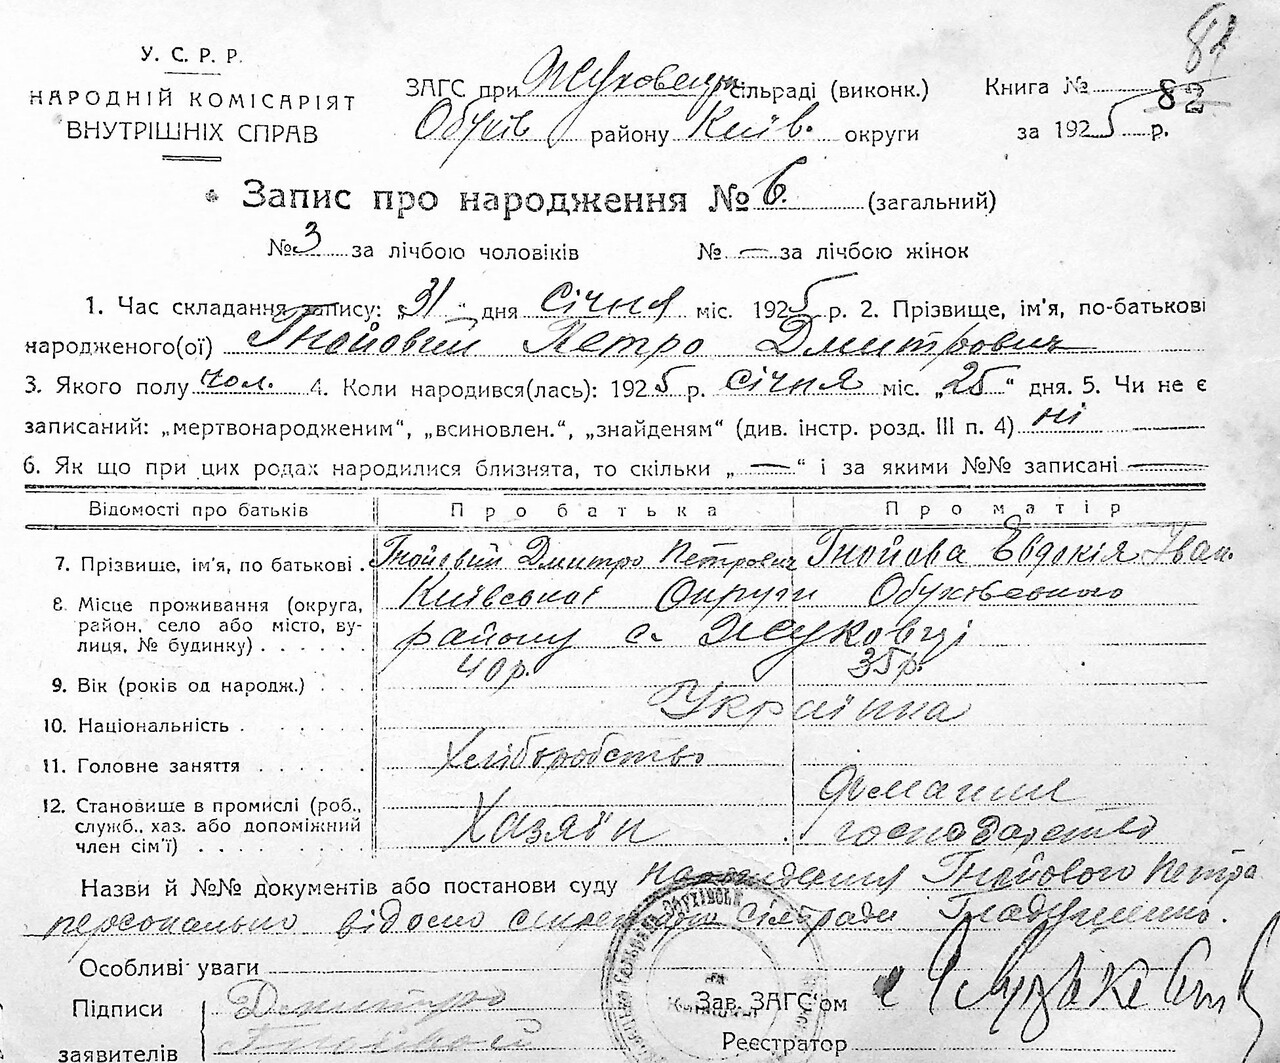 У. С. Р. Р.
НАРОДНІЙ КОМІСАРІЯТ
ВНУТРІШНІХ СПРАВ
ЗАГС при Жуковец. сільраді (виконк.)
Обухів району Київ. округи
Книга №
за 1925 р.
82
Запис про народження № 6. (загальний)
№ 3 за лічбою чоловіків № — за лічбою жінок
1. Час складання запису: „31“ дня Січня міс. 1925 р. 2. Прізвище, ім'я, по-батькові
народженого(ої) Гнойовий Петро Дмитрович
3. Якого полу чол. 4. Коли народився(лась): 1925 р. Січня міс. „25“ дня. 5. Чи не є
записаний: „мертвонародженим“, „всиновлен.“, „знайденям“ (див. інстр. розд. III п. 4) ні
6. Як що при цих родах народилися близнята, то скільки „—“ і за якими №№ записані —
Відомості про батьків Про батька Про матір
7. Прізвище, ім'я, по батькові . Гнойовий Дмитро Петрович Гнойова Евдокія Іван.
8. Місце проживання (округа, район, село або місто, вулиця, № будинку) . . . . . . Київської Округи Обухівського
району с. Жуковці
9. Вік (років од народж.) . . . 40 р. 35 р.
10. Національність . . . . . . Українка
11. Головне заняття . . . . . . Хліборобство
12. Становище в промислі (роб., служб., хаз. або допоміжний член сім'ї) . . . . . . . . . Хазяїн домашнє господарство
Назви й №№ документів або постанови суду народження Гнойового Петра
персонально відомо сільради
Особливі уваги
Підписи Дмитро
заявителів Гнойовой
Зав. ЗАГС'ом
Реєстратор